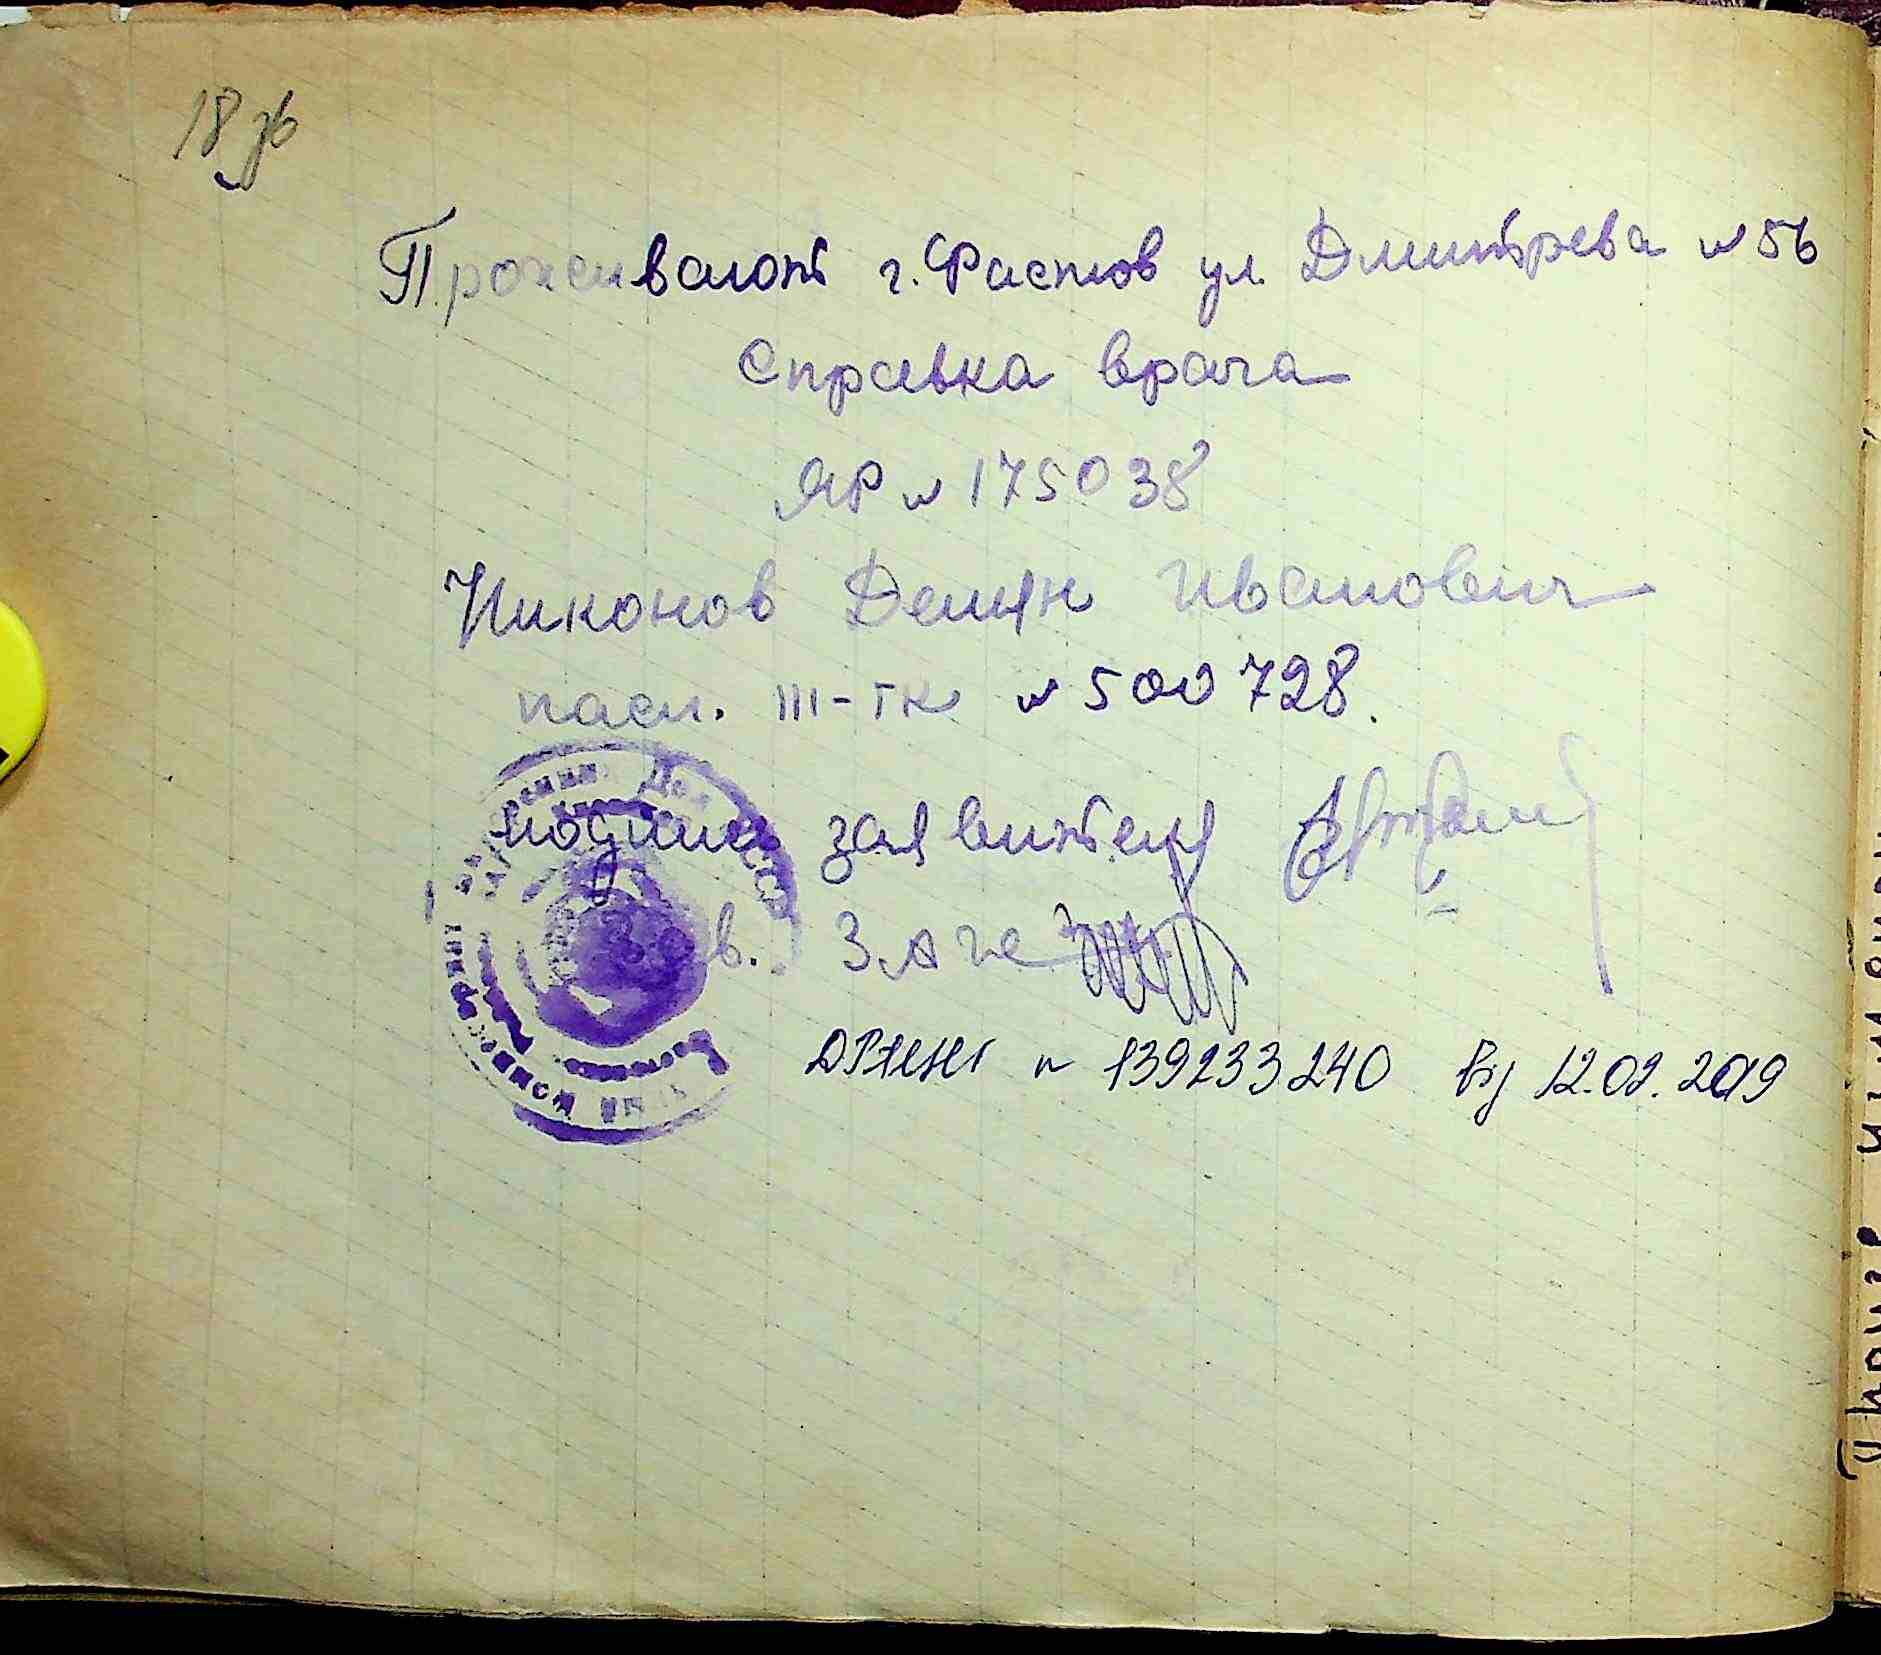 18 зв
Проживают г. Фастов ул. Дмитрева № 56
Справка врача
ЯР № 175038
Никонов Демян Иванович
пасп. III-ГК № 500728.
подпись заявителя
Зав. ЗАГС
№ 139233240 від 12.02.2019